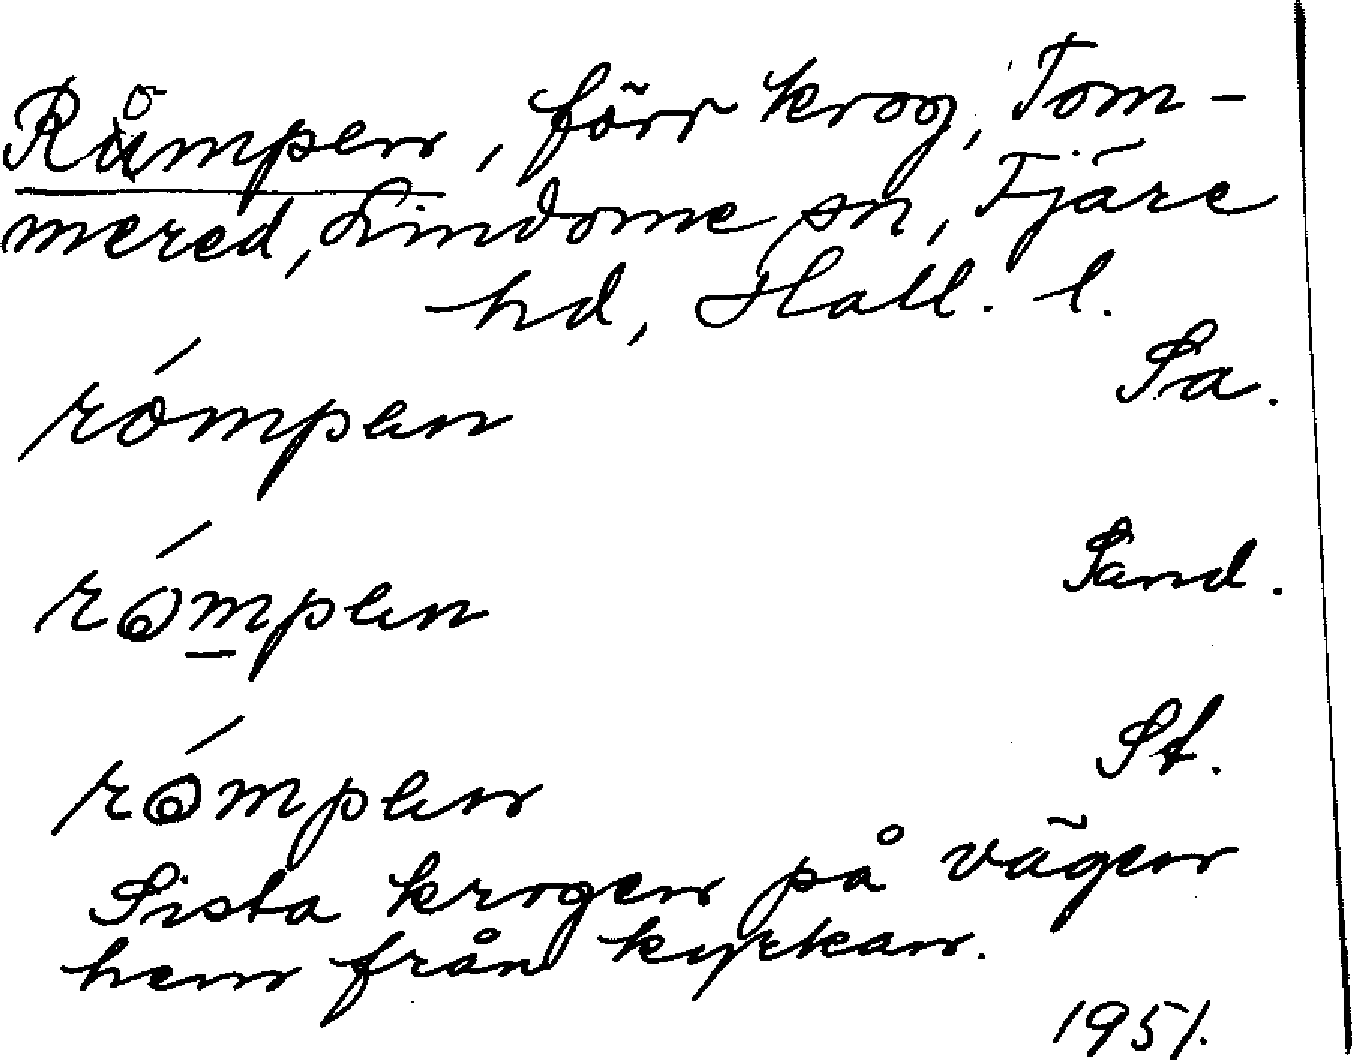 Råmpen, förr krog, Tom-
mered, Lindome sn, Fjäre
hd, Hall. l.
rómpen Sa.
rómpen Sand.
rómpen St.
Sista krogen på vägen
hem från kyrkan.
1951.